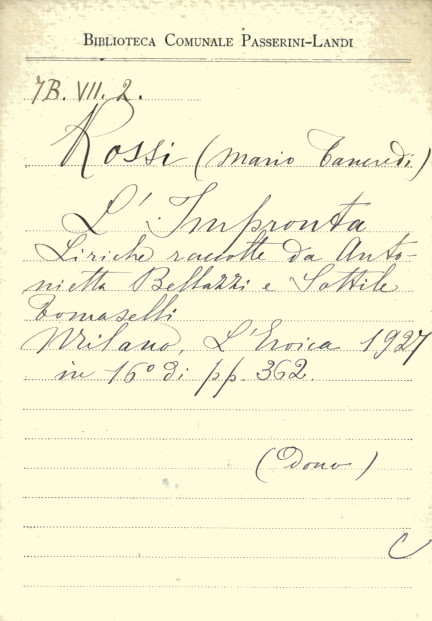 BIBLIOTECA COMUNALE PASSERINI-LANDI
7B. VII. 2.
Rossi (Mario Tancredi)
L'Impronta
Liriche raccolte da Anto-
nietta Bellazzi e Sottile
Tomaselli
Milano, L'Eroica 1927
in 16° di pp. 362.
(Dono)
C